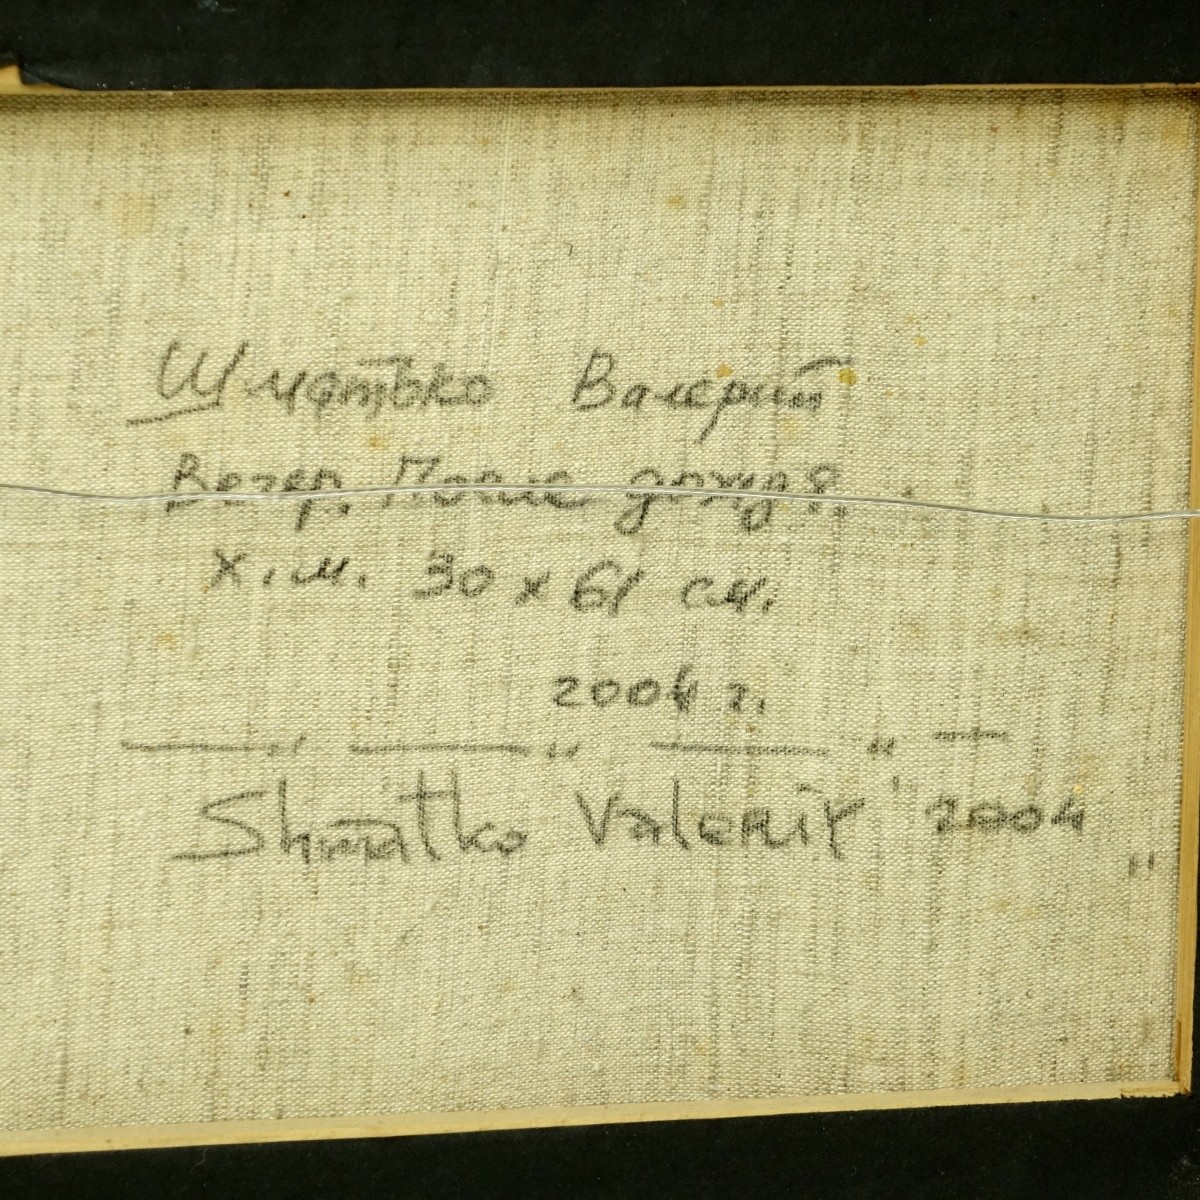 Шматько Валерий
Вечер. После дождя.
х.м. 30 x 61 см.
2004 г.
— " — " — " —
Shmatko Valeriy 2004
"